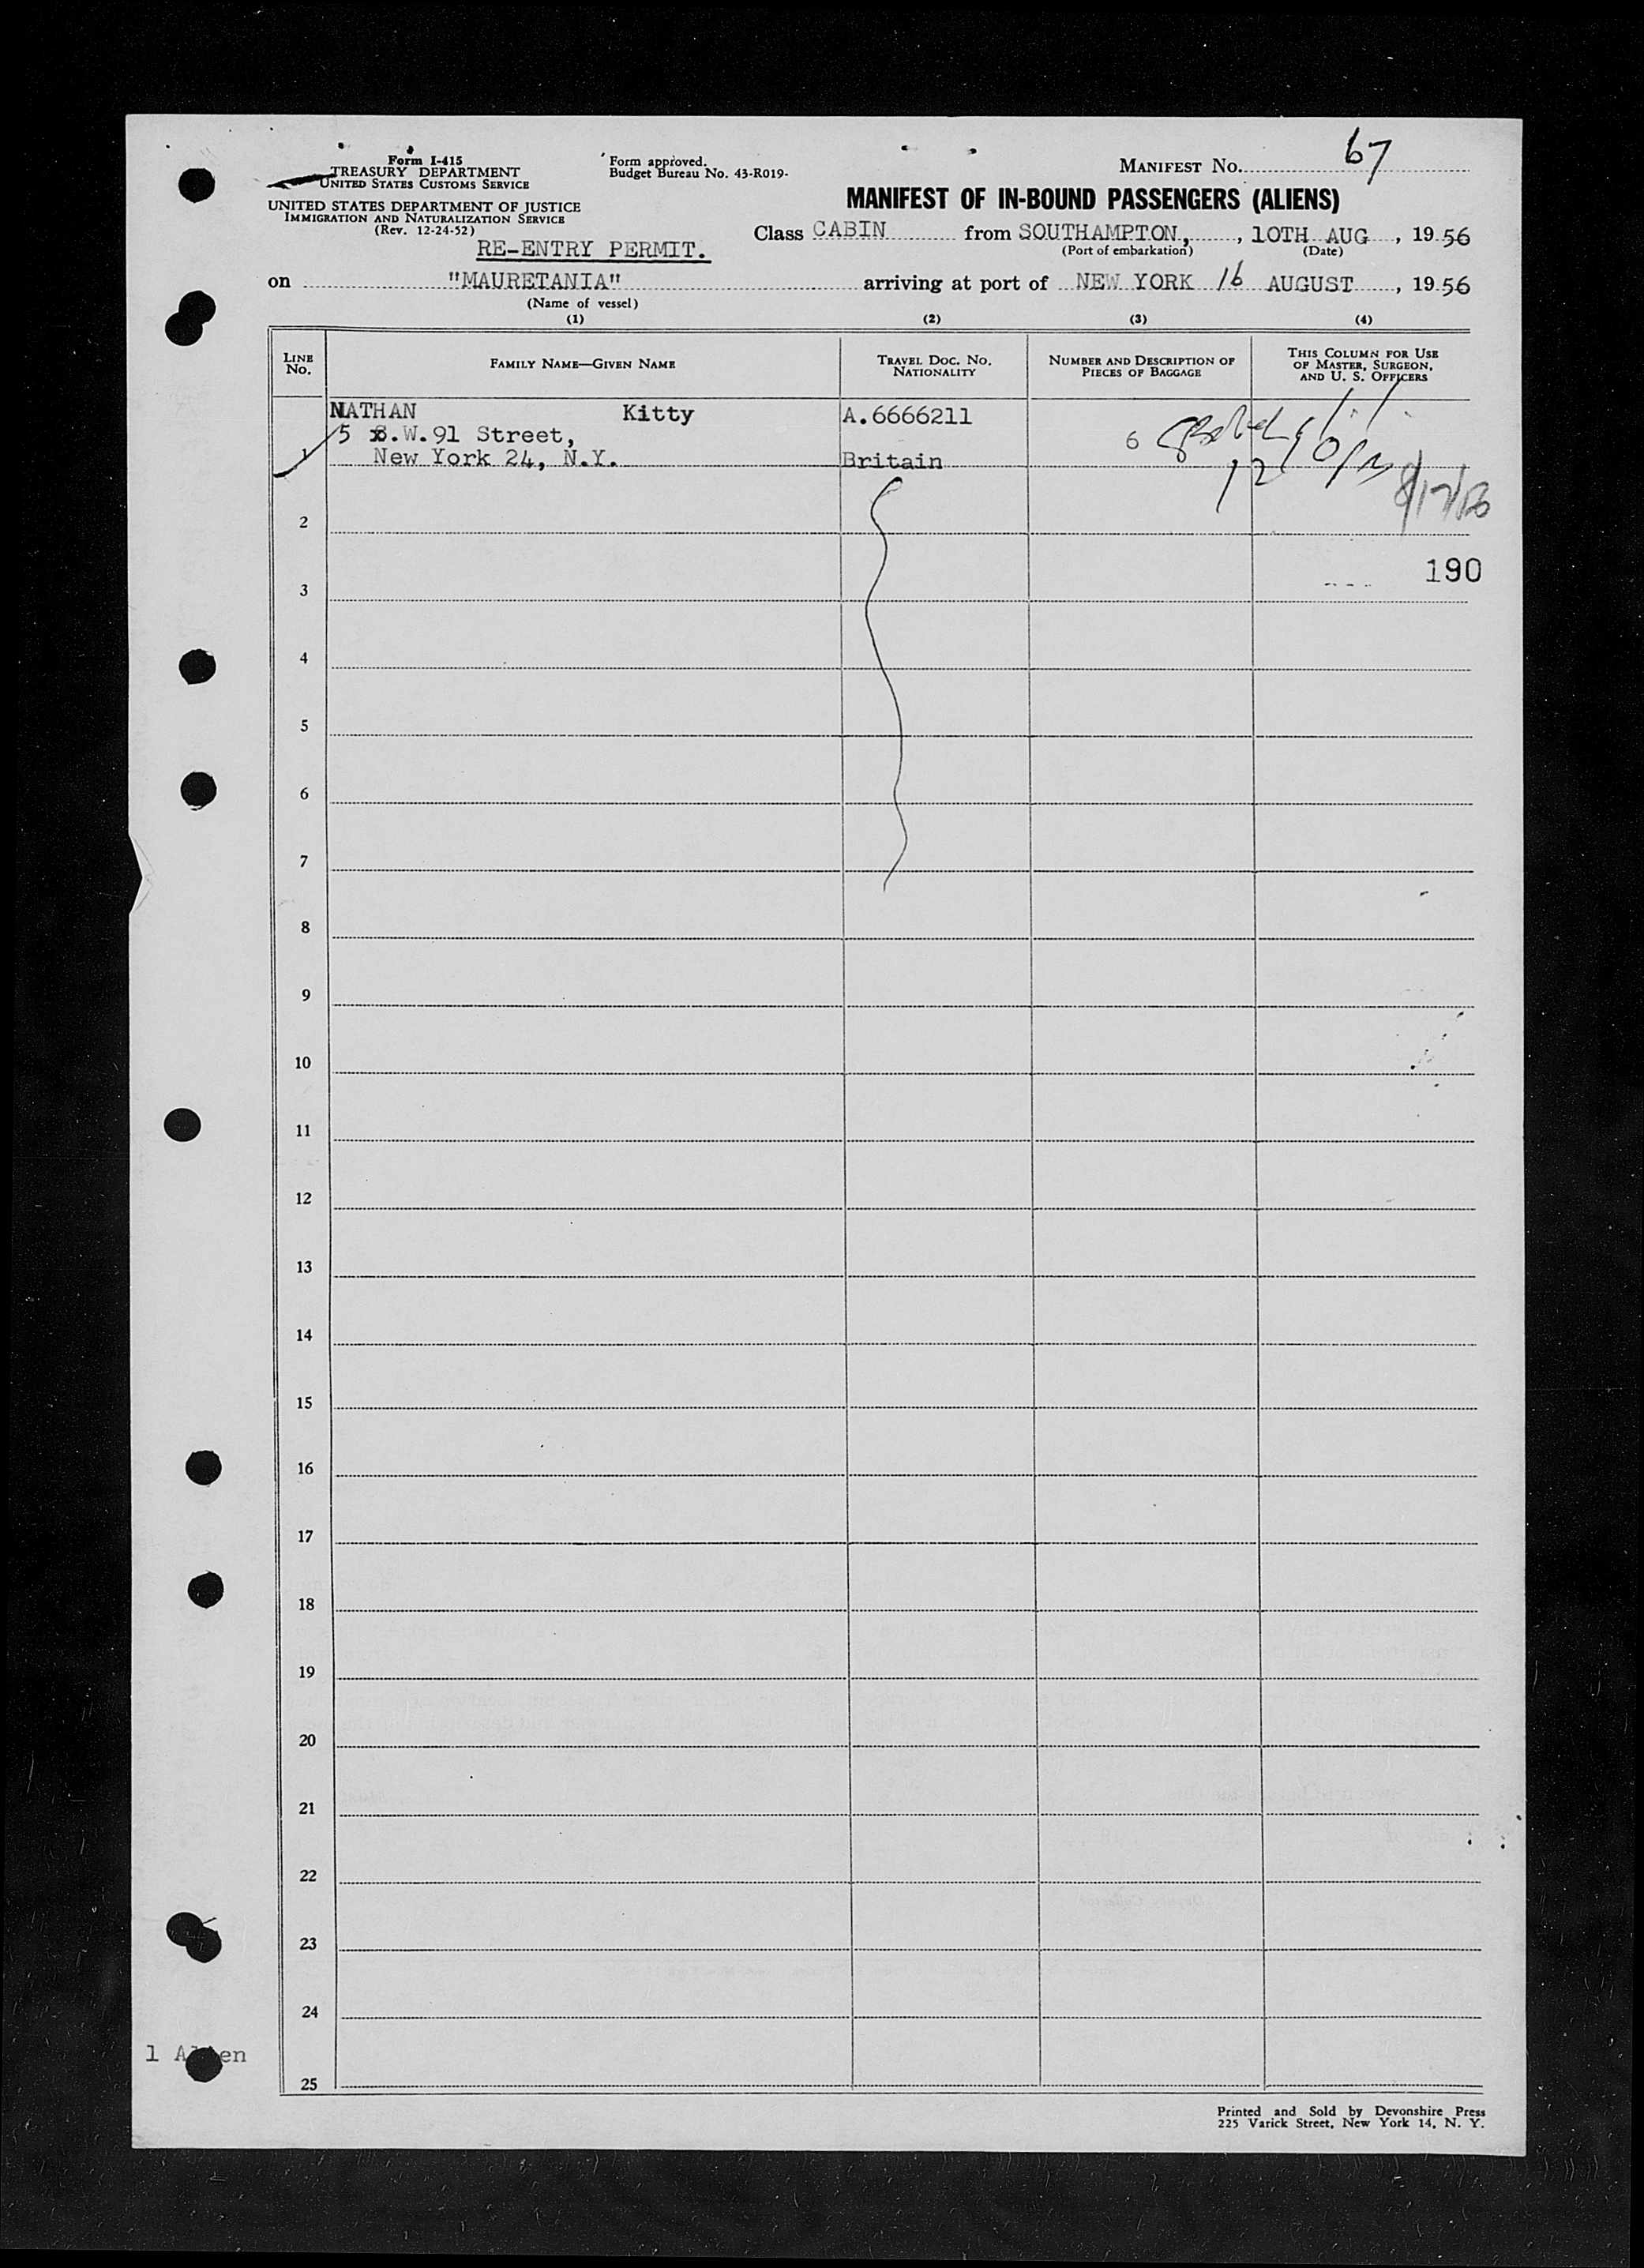 Form I-415
TREASURY DEPARTMENT
UNITED STATES CUSTOMS SERVICE
UNITED STATES DEPARTMENT OF JUSTICE
IMMIGRATION AND NATURALIZATION SERVICE
(Rev. 12-24-52)
Form approved.
Budget Bureau No. 43-R019-
MANIFEST No. 67
MANIFEST OF IN-BOUND PASSENGERS (ALIENS)
RE-ENTRY PERMIT.
Class CABIN from SOUTHAMPTON, , 10TH AUG , 19 56
(Port of embarkation) (Date)
on "MAURETANIA" arriving at port of NEW YORK 16 AUGUST , 19 56
(Name of vessel)
(1) (2) (3) (4)
LINE No. FAMILY NAME—GIVEN NAME TRAVEL DOC. NO. NATIONALITY NUMBER AND DESCRIPTION OF PIECES OF BAGGAGE THIS COLUMN FOR USE OF MASTER, SURGEON, AND U. S. OFFICERS
NATHAN Kitty A.6666211
5 .W.91 Street, 6
1 New York 24, N.Y. Britain
8/17/56
2
190
3
4
5
6
7
8
9
10
11
12
13
14
15
16
17
18
19
20
21
22
23
24
1 A en
25
Printed and Sold by Devonshire Press
225 Varick Street, New York 14, N. Y.